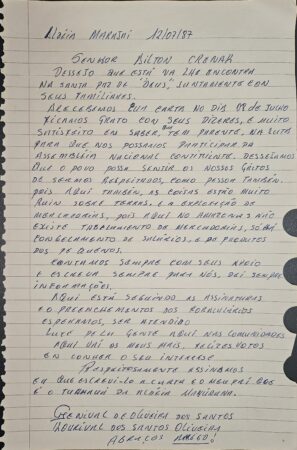 Aldeia Marajaí 12/07/87
Senhor Ailton Crenar
Dessejo que está va lhe encontra
na santa paz de "Deus", juntamente con
seus familiares.
Arecebemos sua carta no dia 08 de Julho
ficamos grato com seus dizeres, e muito
satisfeito em saber, que tem parente, na luta
para que nos possamos participar da
Assemblia Nacional Constituinte, desseiamos
que o povo possa sentir os nossos gritos
de sermos respeitados, como pessoa também.
pois aqui também, as coisas estão muito
ruin sobre terras, e a exploração de
mercadorias, pois aqui no Amazonas não
existe tabelamento de mercadorias, só há
congelamento de salários, e do produtos
dos pequenos.
Contamos sempre com seus apoio
e escreva sempre para nós, dei sempre
informações.
Aqui está seguindo as assinaturas
e o preenchementos dos formulários
esperamos, ser atendido
Lute pela gente aqui nas comunidades.
Aqui vai os meus mais, felizes votos
em conher o seu interesse
Respeitosamente assinamos
eu que escrevi-lo a carta e o meu pai que
é o tuxaua da aldeia Mayuruna.
Genival de Oliveira dos Santos
Lourival dos Santos Oliveira
Abraços amigo!